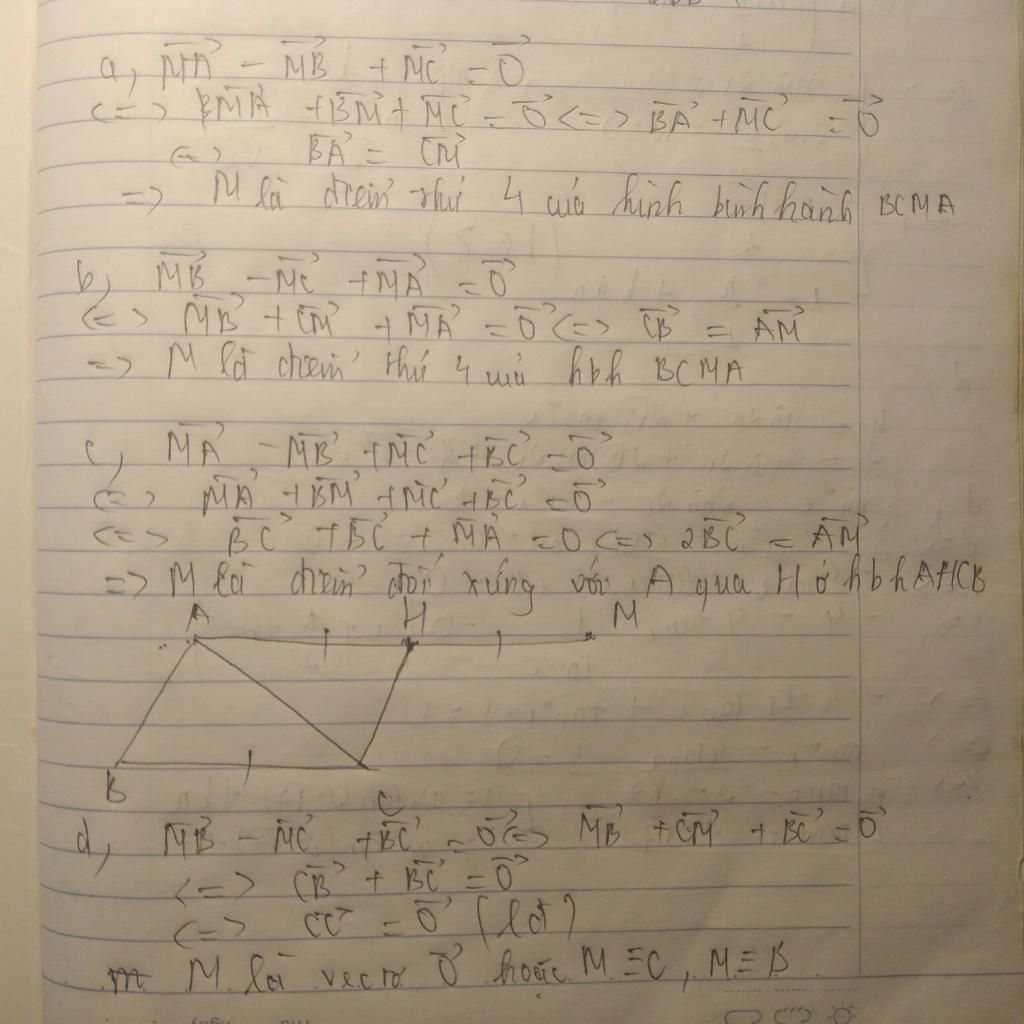 a, MA⃗ - MB⃗ + MC⃗ = 0⃗
<=> MA⃗ + BM⃗ + MC⃗ = 0⃗ <=> BA⃗ + MC⃗ = 0⃗
<=> BA⃗ = CM⃗
=> M là điểm thứ 4 của hình bình hành BCMA
b, MB⃗ - MC⃗ + MA⃗ = 0⃗
<=> MB⃗ + CM⃗ + MA⃗ = 0⃗ <=> CB⃗ = AM⃗
=> M là điểm thứ 4 của hbh BCMA
c, MA⃗ - MB⃗ + MC⃗ + BC⃗ = 0⃗
<=> MA⃗ + BM⃗ + MC⃗ + BC⃗ = 0⃗
<=> BC⃗ + BC⃗ + MA⃗ = 0 <=> 2BC⃗ = AM⃗
=> M là điểm đối xứng với A qua H ở hbh AHCB
A H M
B C
d, MB⃗ - MC⃗ + BC⃗ = 0⃗ <=> MB⃗ + CM⃗ + BC⃗ = 0⃗
<=> CB⃗ + BC⃗ = 0⃗
<=> CC⃗ = 0⃗ (lđ)
M là vectơ 0⃗ hoặc M ≡ C, M ≡ B